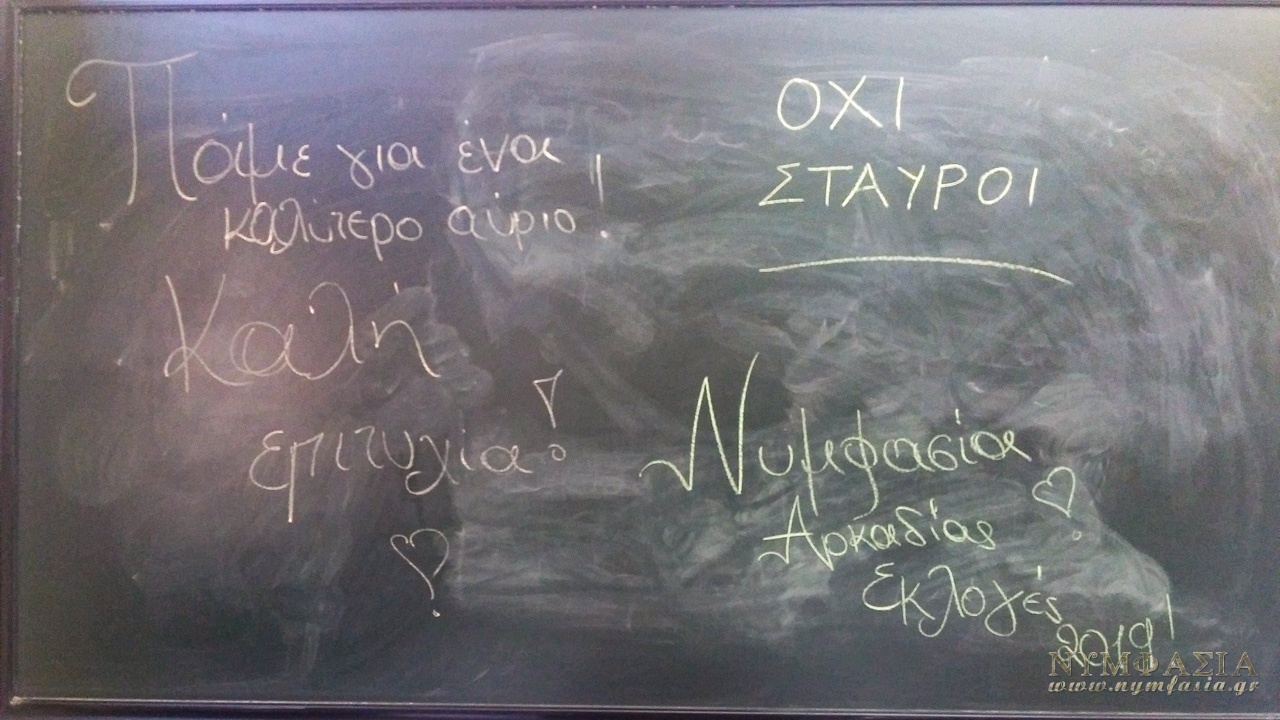 Πάμε για ένα
καλύτερο αύριο!!
Καλή
επιτυχία!
ΟΧΙ
ΣΤΑΥΡΟΙ
Νυμφασία
Αρκαδίας
Εκλογές
2019!
ΝΥΜΦΑΣΙΑ
www.nymfasia.gr